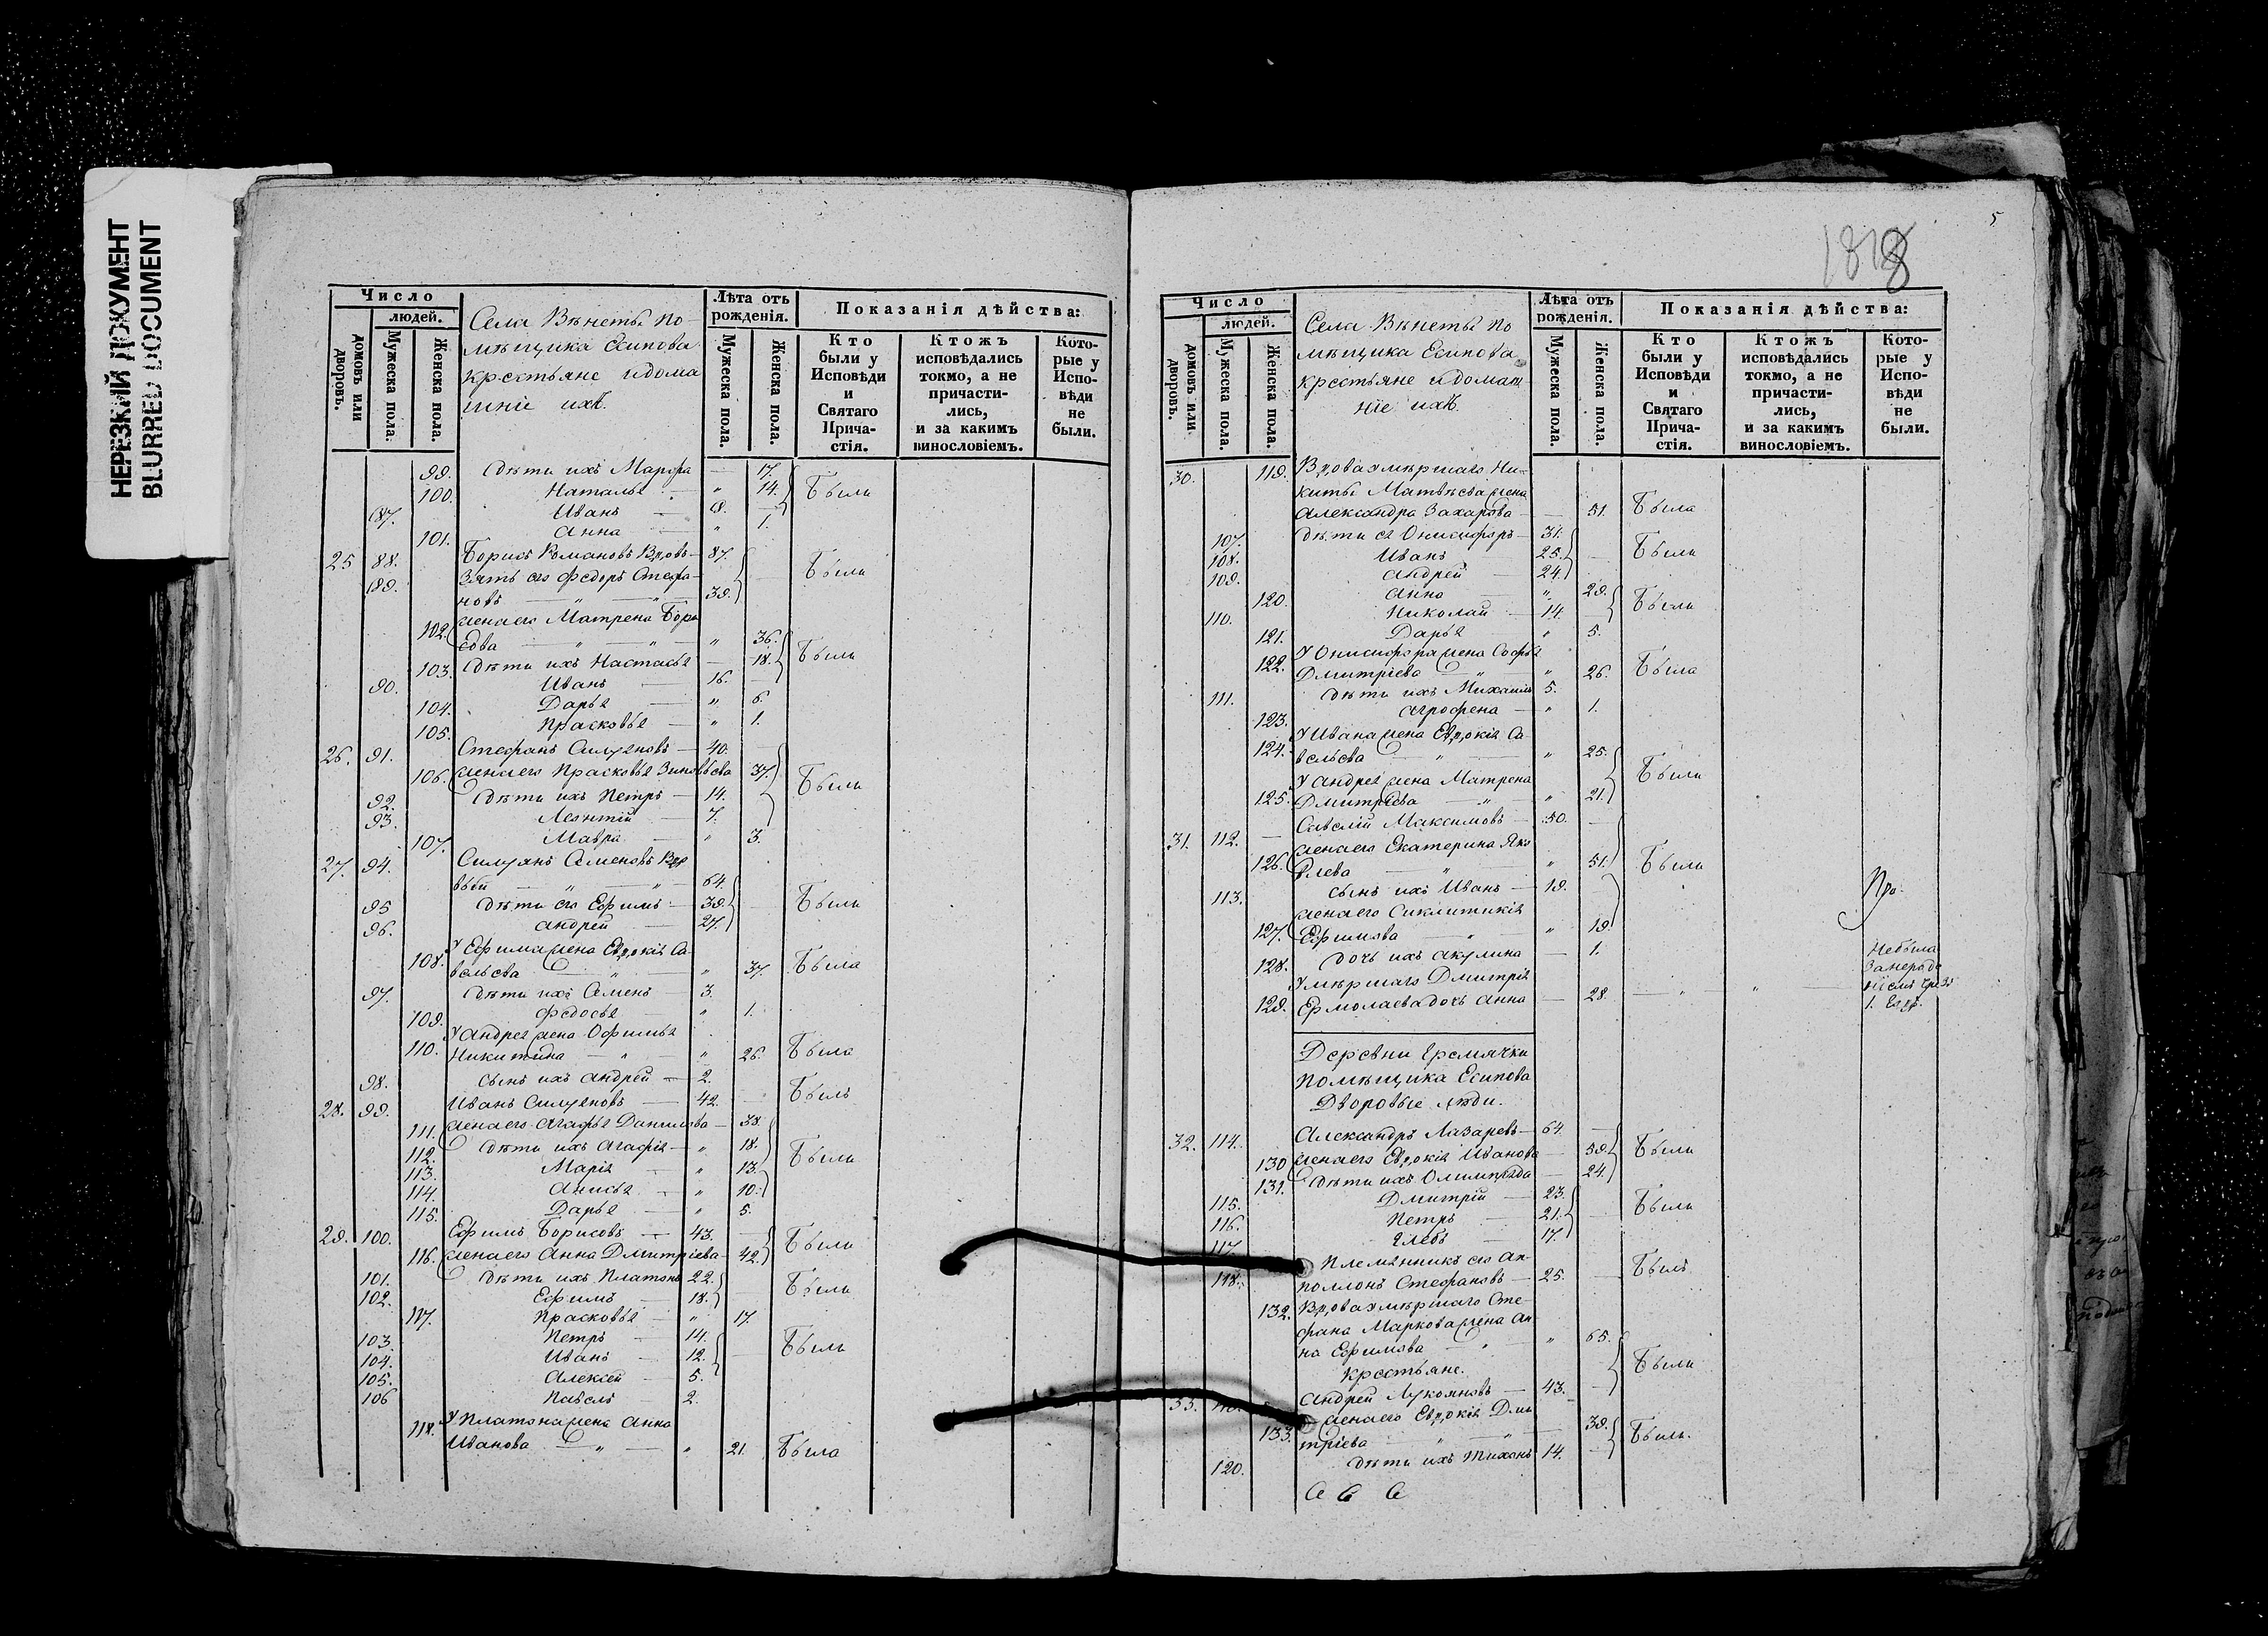 НЕРЕЗКИЙ ДОКУМЕНТ
BLURRED DOCUMENT
Число
людей.
домовъ или дворовъ.
Мужеска пола.
Женска пола.
Села Вѣнеты по-
мѣщика Есипова
крестьяне и дома
шніе ихъ.
Лѣта отъ рожденія.
Мужеска пола.
Женска пола.
Показанія дѣйства:
Кто были у Исповѣди и Святаго Прича-стія.
Ктожъ исповѣдались токмо, а не причасти-лись, и за какимъ винословіемъ.
Кото-рые у Испо-вѣди не были.
99. Дѣти ихъ Марфа — 17.
100. Наталья — " 14. Были
87. Иванъ — 8. —
101. Анна — " 1.
25 88. Борисъ Романовъ Вдовъ — 87.
89. Зять его Федоръ Стефа-
новъ — " — " 39. Были
102. Жена его Матрена Бори
сова — " — " " 36.
103. Дѣти ихъ Настасья — 18. Были
90. Иванъ — 16. —
104. Дарья — " 6.
105. Прасковья — " 1.
26. 91. Стефанъ Силуяновъ — 40. —
106. Жена его Прасковья Зиновьева 37. Были
92. Дѣти ихъ Петръ — 14.
93. Леонтій — 7.
107. Мавра — " 3.
27. 94. Силуянъ Семеновъ Вдо
вый — " — " — 64.
95 Дѣти его Ефимъ — 39. Были
96. Андрей — 27.
108. У Ефима жена Евдокія Са-
вельева — " — " 37. Была
97. Дѣти ихъ Семенъ — 3.
109. Федосья — " 1.
110. У Андрея жена Офимья
Никитина — " — " 26. Была
98. Сынъ ихъ Андрей — 2.
28. 99. Иванъ Силуяновъ — 42. — Былъ
111. Жена его Агафья Данилова — 38.
112. Дѣти ихъ Агафія — " 18. Были
113. Марія — " 13.
114. Анисья — " 10.
115. Дарья — " 5.
29. 100. Ефимъ Борисовъ — 43. — Были
116. Жена его Анна Дмитріева — 42.
101. Дѣти ихъ Платонъ 22.
102. Ефимъ — 18. Были
117. Прасковья — " 17.
103. Петръ — 14.
104. Иванъ — 12. — Были
105. Алексей — 5.
106 Павелъ 2.
118. У Платона жена Анна
Иванова — " — " 21. Была
1818
5
Число
людей.
домовъ или дворовъ.
Мужеска пола.
Женска пола.
Села Вѣнеты по
мѣщика Есипова
крестьяне и домаш
ніе ихъ.
Лѣта отъ рожденія.
Мужеска пола.
Женска пола.
Показанія дѣйства:
Кто были у Исповѣди и Святаго Прича-стія.
Ктожъ исповѣдались токмо, а не причасти-лись, и за какимъ винословіемъ.
Кото-рые у Испо-вѣди не были.
30. 119. Вдова умѣршаго Ни-
киты Матвѣева жена
Александра Захарова — — 51. Была
107. Дѣти ея Онисифоръ — 31.
108. Иванъ 25. — Были
109. Андрей — 24.
120. Анна — " 29.
110. Николай — 14. — Были
121. Дарья " 5.
122. У Онисифора жена Софья
Дмитріева — " " 26. Была
111. Дѣти ихъ Михаилъ 5.
123. Агрофена — " 1.
124. У Ивана жена Евдокія Са-
вельева — " — " 25.
У Андрея жена Матрена Были
125. Дмитріева — " — " 21.
31. 112. — Савелій Максимовъ — 50. —
126. Жена его Екатерина Яко
влева — " — " 51. Были
113. Сынъ ихъ Иванъ — 19. —
127. Жена его Сиклитикія
Ефимова — " — " 19.
128. Дочь ихъ Акулина — 1.
129. Умѣршаго Дмитрія
Ермолаева дочь Анна — 28. — " — " —
Небыла
1.
Деревни Еремячки
помѣщика Есипова
Дворовые люди.
32. 114. Александръ Лазаревъ — 64. —
130 Жена его Евдокія Иванова — 59. Были
131. Дѣти ихъ Олимпіада — 24.
115. Дмитрій — 23.
116. Петръ — 21. — Были
117. Глебъ — 17.
118. Племянникъ его Ап-
полонъ Стефановъ — 25. — Былъ
132. Вдова умѣршаго Сте-
фана Маркова жена Ан-
на Ефимова — " — " 65.
Крестьяне. Были
33. Андрей Лукояновъ — 43. —
133. Жена его Евдокія Дми
тріева — " — " 39. Были.
120. Дѣти ихъ Тихонъ 14. —